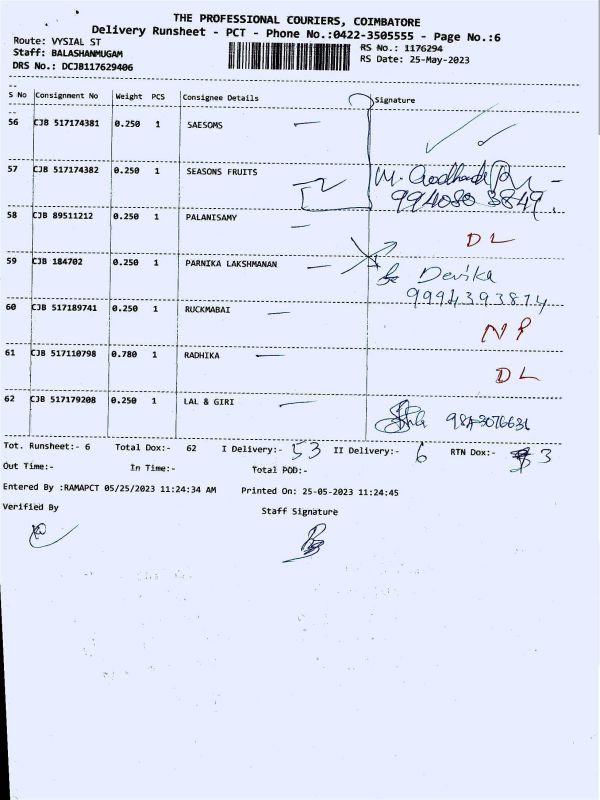 THE PROFESSIONAL COURIERS, COIMBATORE
Delivery Runsheet - PCT - Phone No.:0422-3505555 - Page No.:6
Route: VYSIAL ST
RS No.: 1176294
Staff: BALASHANMUGAM
RS Date: 25-May-2023
DRS No.: DCJB117629406
S No Consignment No Weight PCS Consignee Details Signature
56 CJB 517174381 0.250 1 SAESOMS
57 CJB 517174382 0.250 1 SEASONS FRUITS
9940803849.
58 CJB 89511212 0.250 1 PALANISAMY DL
59 CJB 184702 0.250 1 PARNIKA LAKSHMANAN Devika
9994393814
60 CJB 517189741 0.250 1 RUCKMABAI NP
61 CJB 517110798 0.780 1 RADHIKA DL
62 CJB 517179208 0.250 1 LAL & GIRI
Tot. Runsheet:- 6 Total Dox:- 62 I Delivery:- 53 II Delivery:- 6 RTN Dox:- 3
Out Time:- In Time:- Total POD:-
Entered By :RAMAPCT 05/25/2023 11:24:34 AM Printed On: 25-05-2023 11:24:45
Verified By Staff Signature